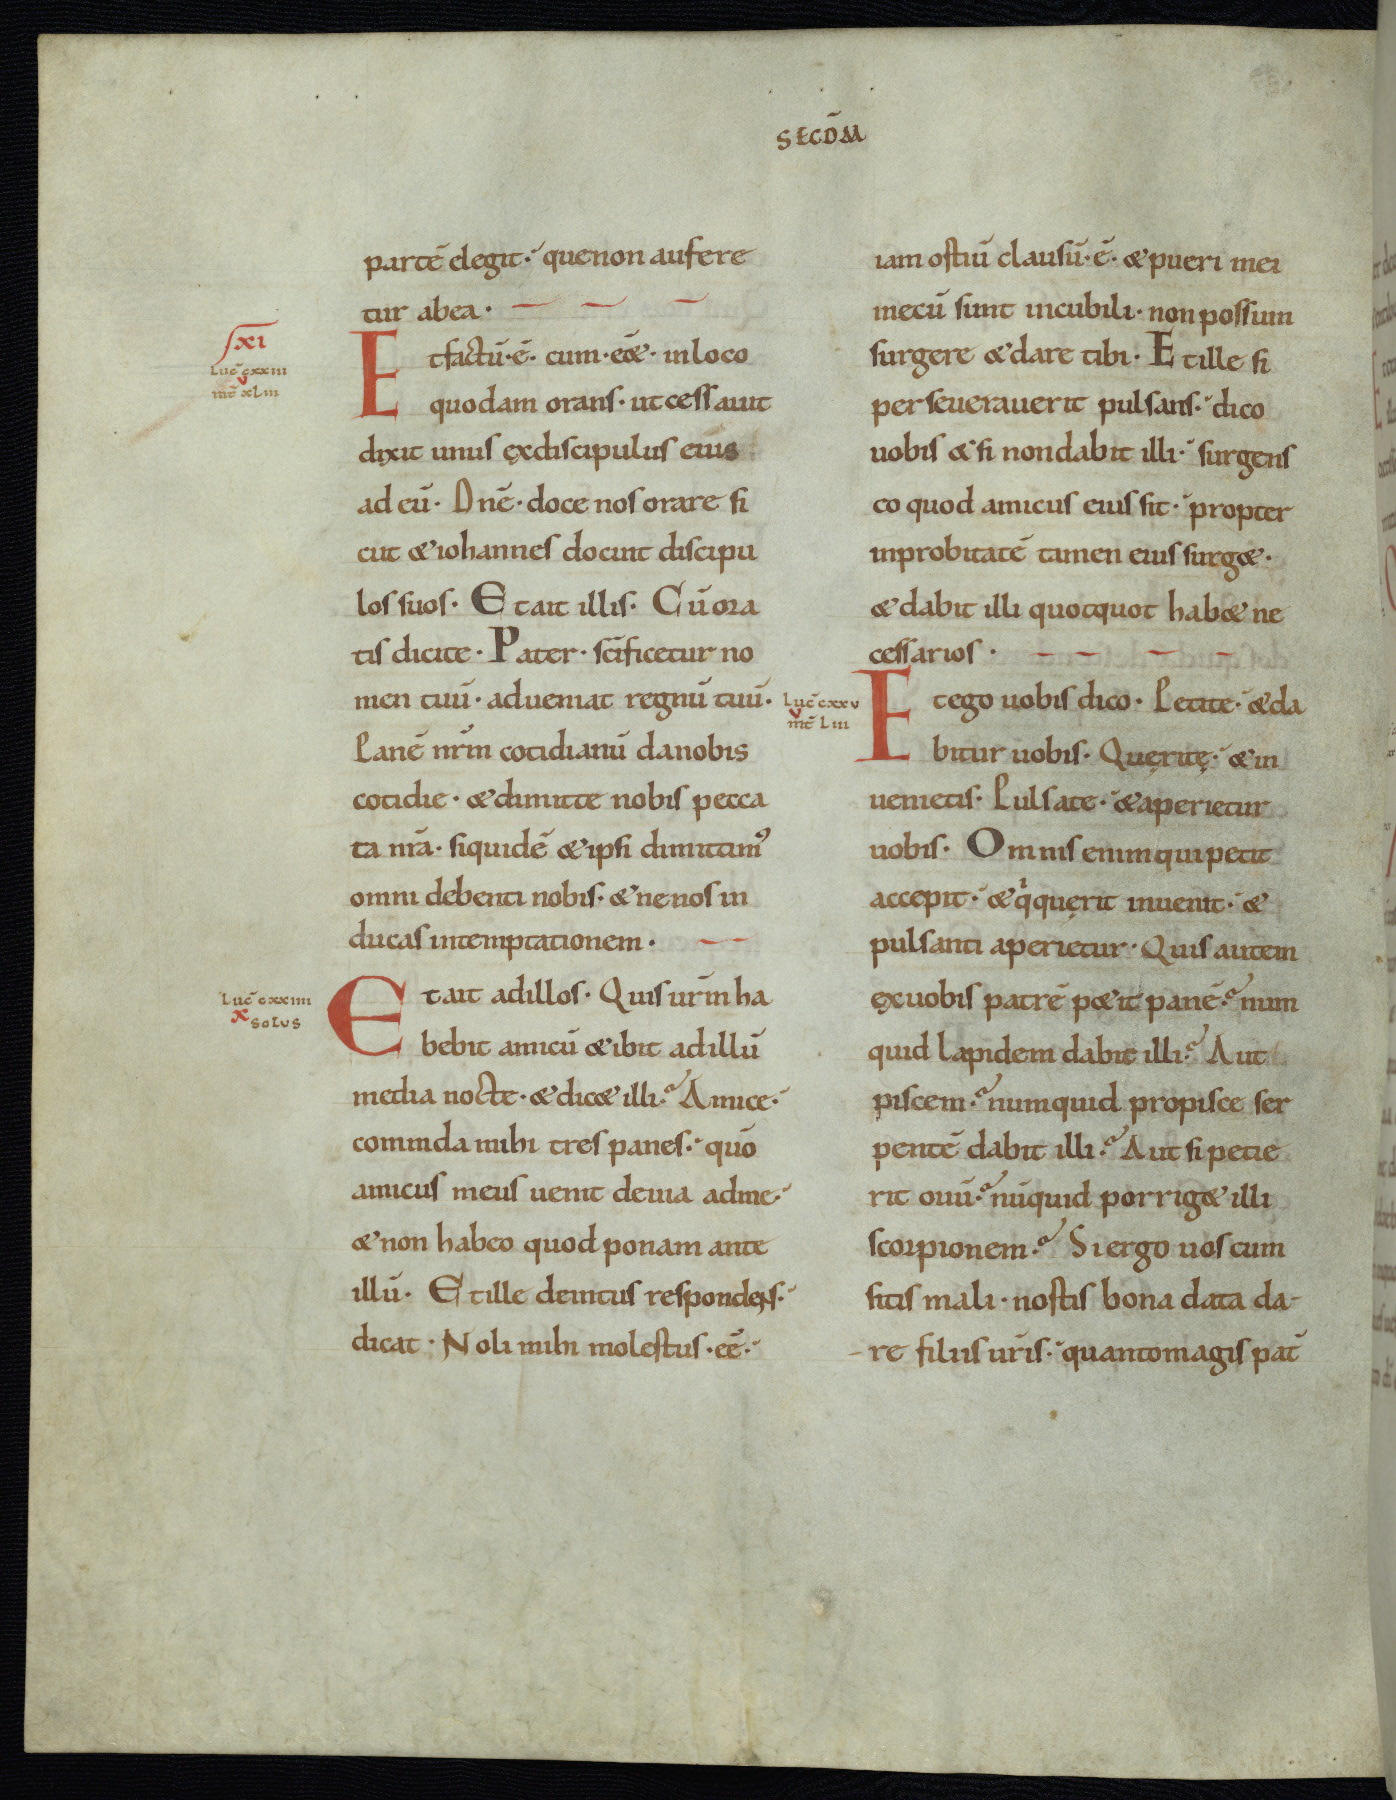 SECD̄M
partē elegit. quenon aufere
tur abea.
XI
Luc̄ cxxiii
v
mt̄ xLiii
Etfactū.ē. cum.eēt. inloco
quodam orans. utcessauit
dixit unus ęxdiscipulus eius
ad eū. Dnē. doce nos orare si
cut &iohannes docuit discipu
los suos. Etait illis. Cū ora
tis dicite. Pater. scīficetur no
men tuū. adueniat regnū tuū.
Panē nrm̄ cotidianū danobis
cotidie. &dimitte nobis pecca
ta nrā. siquidē &ipsi dimittim᾽
omni debenti nobis. &nenos in
ducas intemptationem.
Luc̄ cxxiiii
x
SOLUS
Etait adillos. Quis urm̄ ha
bebit amicū &ibit adillū
media nocte. &dic& illi. Amice.
commda mihi tres panes. quō
amicus meus uenit deuia adme.
&non habeo quod ponam ante
illū. Etille deintus respondens.
dicat. Noli mihi molestus.eē.
iam ostiū clausū.ē. &pueri mei
mecū sunt incubili. non possum
surgere &dare tibi. Etille si
perseuerauerit pulsans. dico
uobis &si nondabit illi. surgens
eo quod amicus eius sit. propter
inprobitatē tamen eius surg&.
&dabit illi quotquot hab& ne
cessarios.
Luc̄ cxxv
v
mt̄ Liii
Etego uobis dico. Petite. &da
bitur uobis. Quęritę. &in
uenietis. Pulsate. &aperietur
uobis. Omnis enim qui petit
accepit. &q̍quęrit inuenit. &
pulsanti aperietur. Quis autem
ęxuobis patrē p&it panē. num
quid lapidem dabit illi. Aut
piscem. numquid propisce ser
pentē dabit illi. Aut si petie
rit ouū. nūquid porrig& illi
scorpionem. Si ergo uos cum
sitis mali. nostis bona data da-
-re filiis urīs. quantomagis pat̄